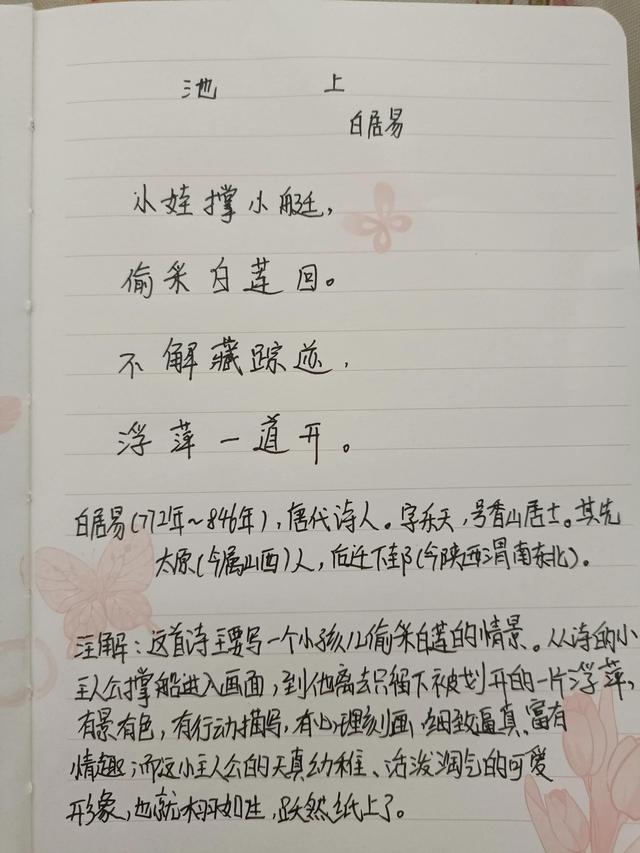 池 上
白居易
小娃撑小艇,
偷采白莲回。
不解藏踪迹,
浮萍一道开。
白居易(772年~846年),唐代诗人。字乐天,号香山居士。其先
太原(今属山西)人,后迁下邽(今陕西渭南东北)。
注解:这首诗主要写一个小孩儿偷采白莲的情景。从诗的小
主人公撑船进入画面,到他离去只留下被划开的一片浮萍,
有景有色,有行动描写,有心理刻画,细致逼真、富有
情趣;而这小主人公的天真幼稚、活泼淘气的可爱
形象,也就栩栩如生,跃然纸上了。